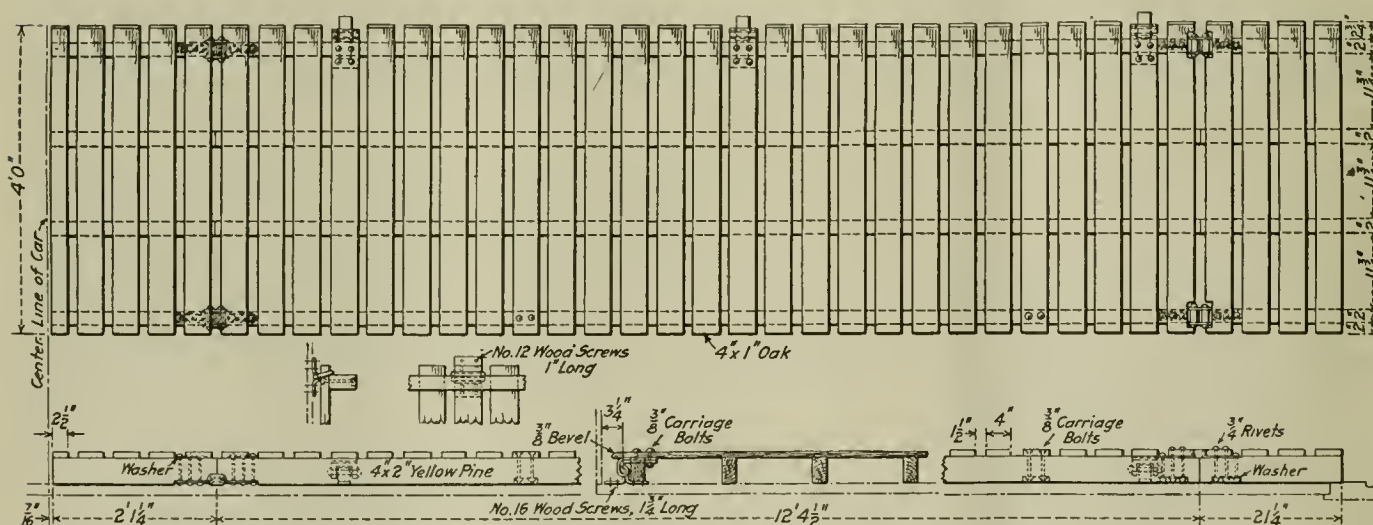 4'0"
Center Line of Car
2 1/2"
2 3/4"
2"
11 3/4"
2"
11 3/4"
2"
11 3/4"
2"
2"
4" x 1" Oak
No.12 Wood Screws
1" Long
2 1/2"
Washer
4"x 2" Yellow Pine
3/8"
3 1/4"
Bevel
3/8" Carriage
Bolts
1 1/2"
4"
3/8" Carriage
Bolts
3/4" Rivets
Washer
No.16 Wood Screws, 1 3/4" Long
7/16"
2' 1 1/4"
12' 4 1/2"
2 1 1/4"